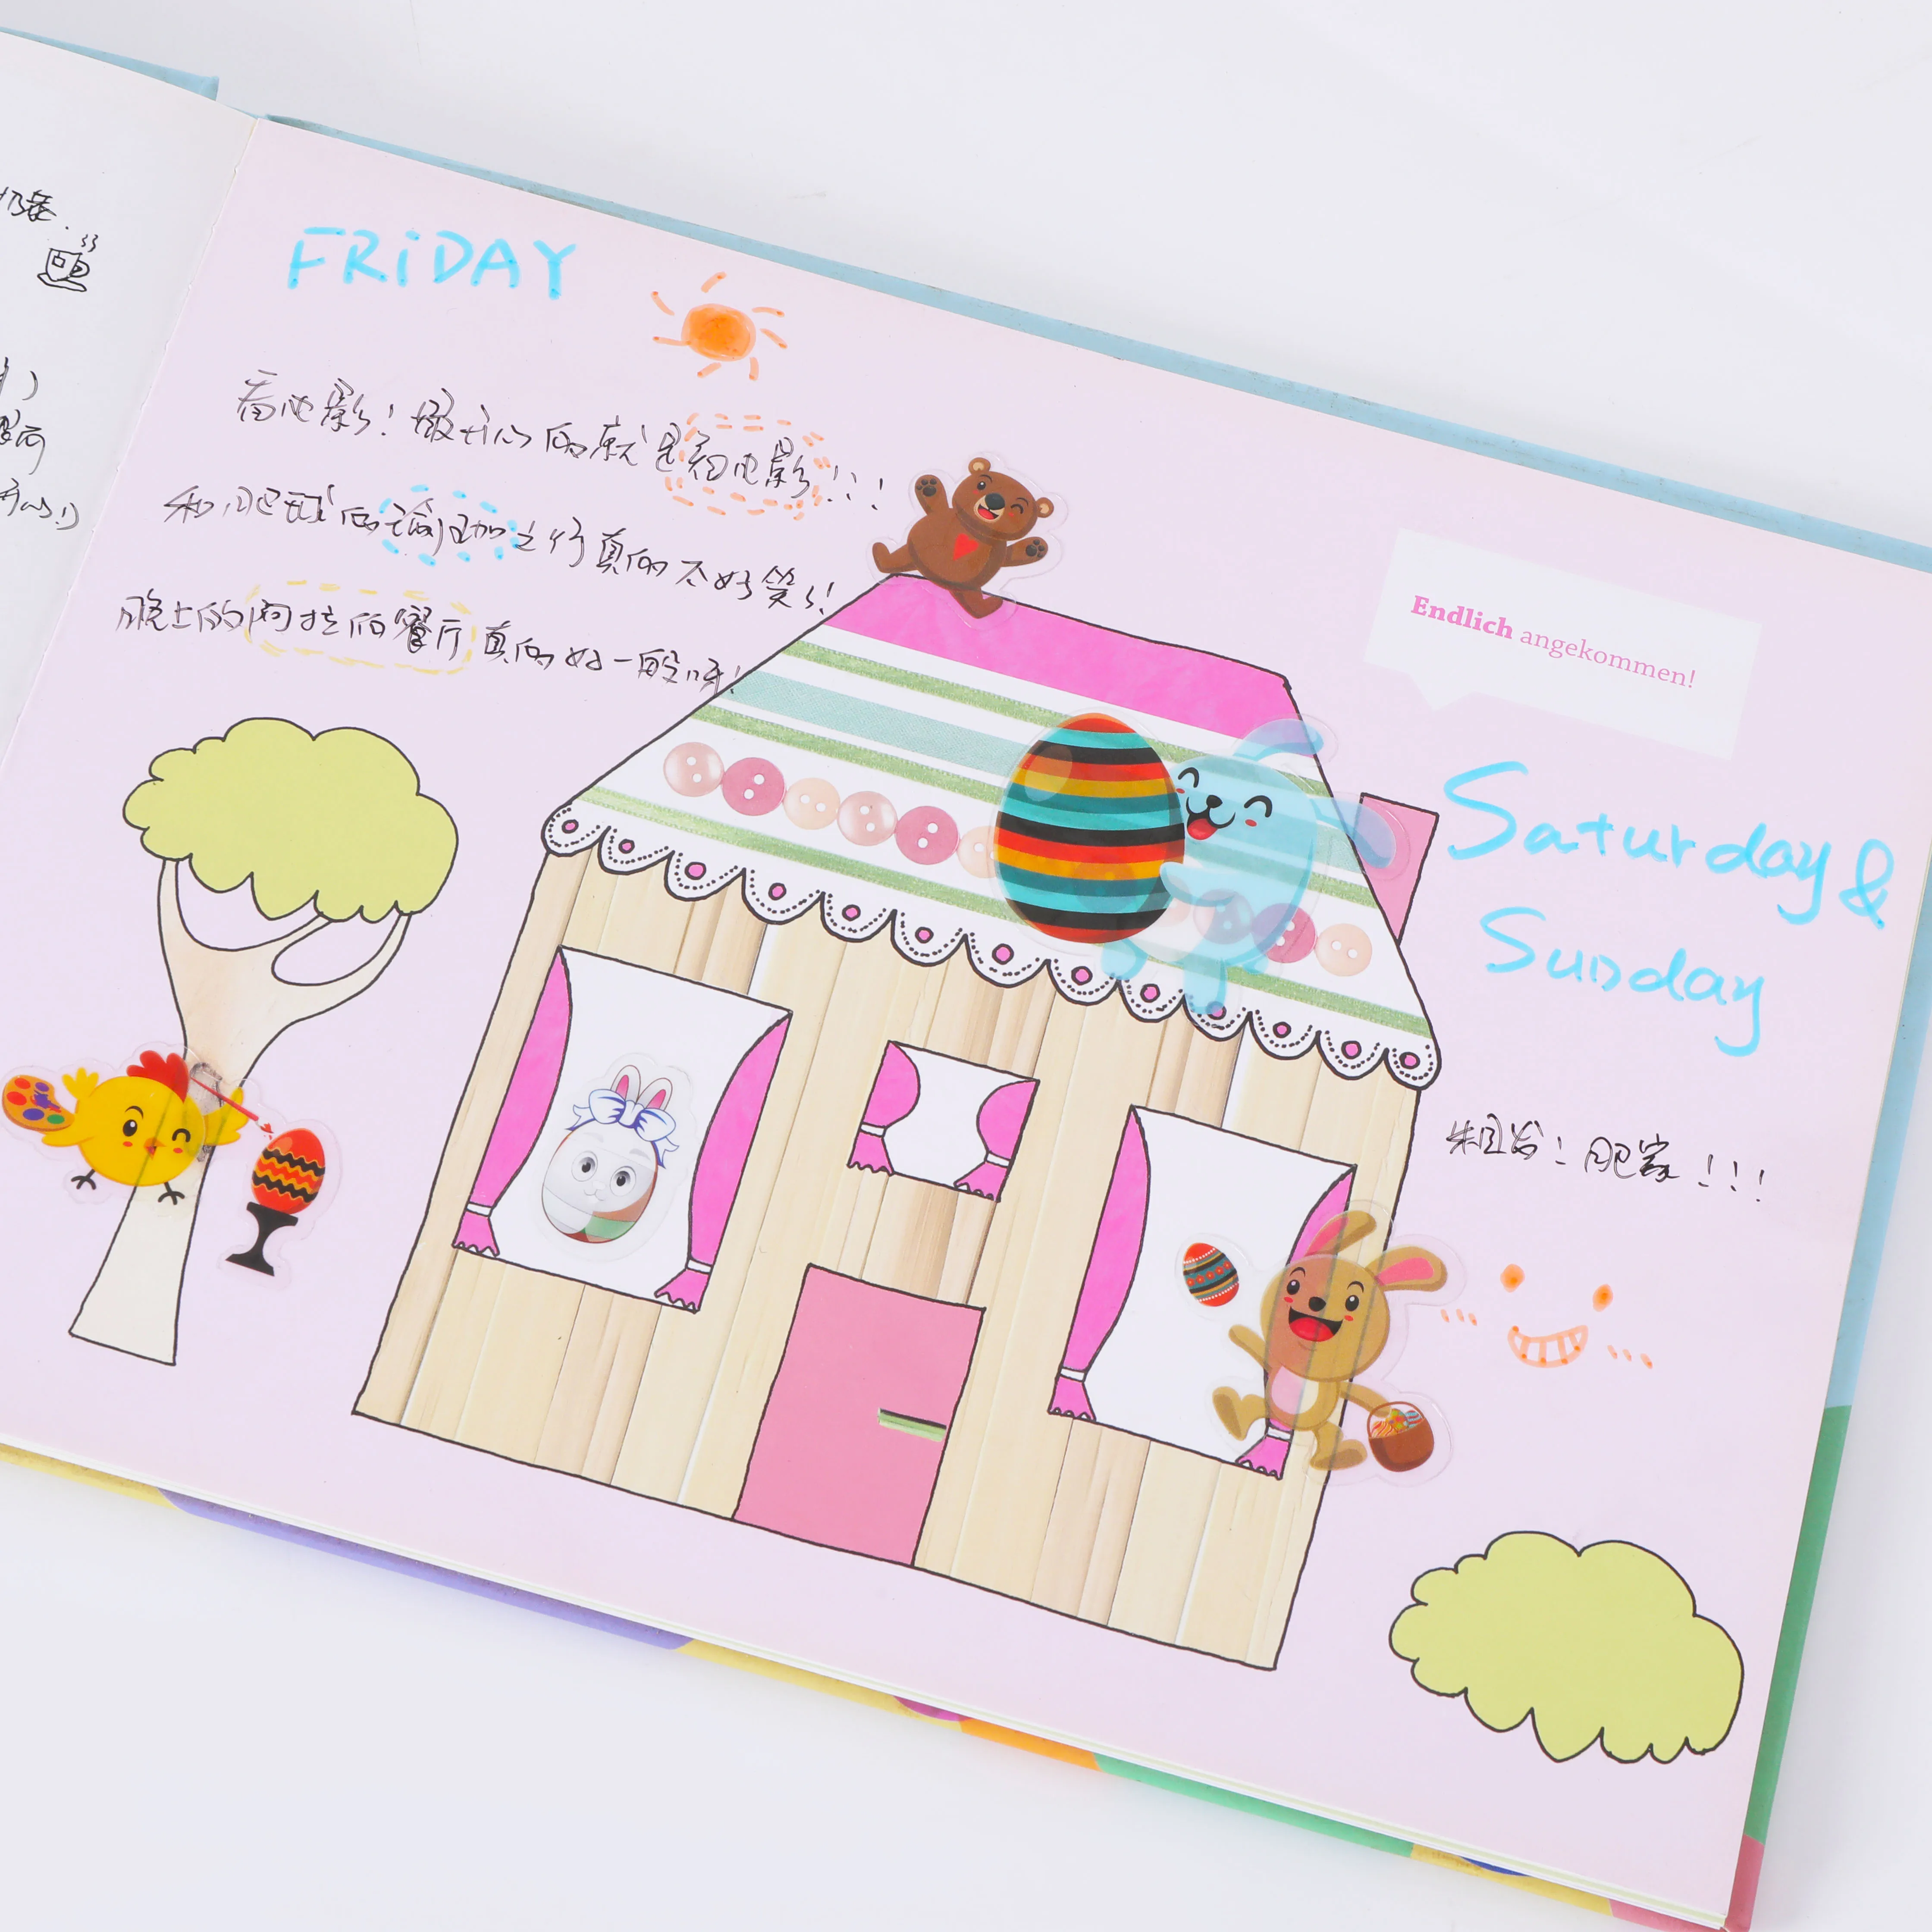 奶茶.
开心!)
FRiDAY
看电影! 最开心的就是看电影!!!
和肥球的瑜伽之行真的太好笑了!
晚上的阿拉伯餐厅真的好一般呀!
Endlich angekommen!
Saturday &
Sunday
粗发! 肥家!!!